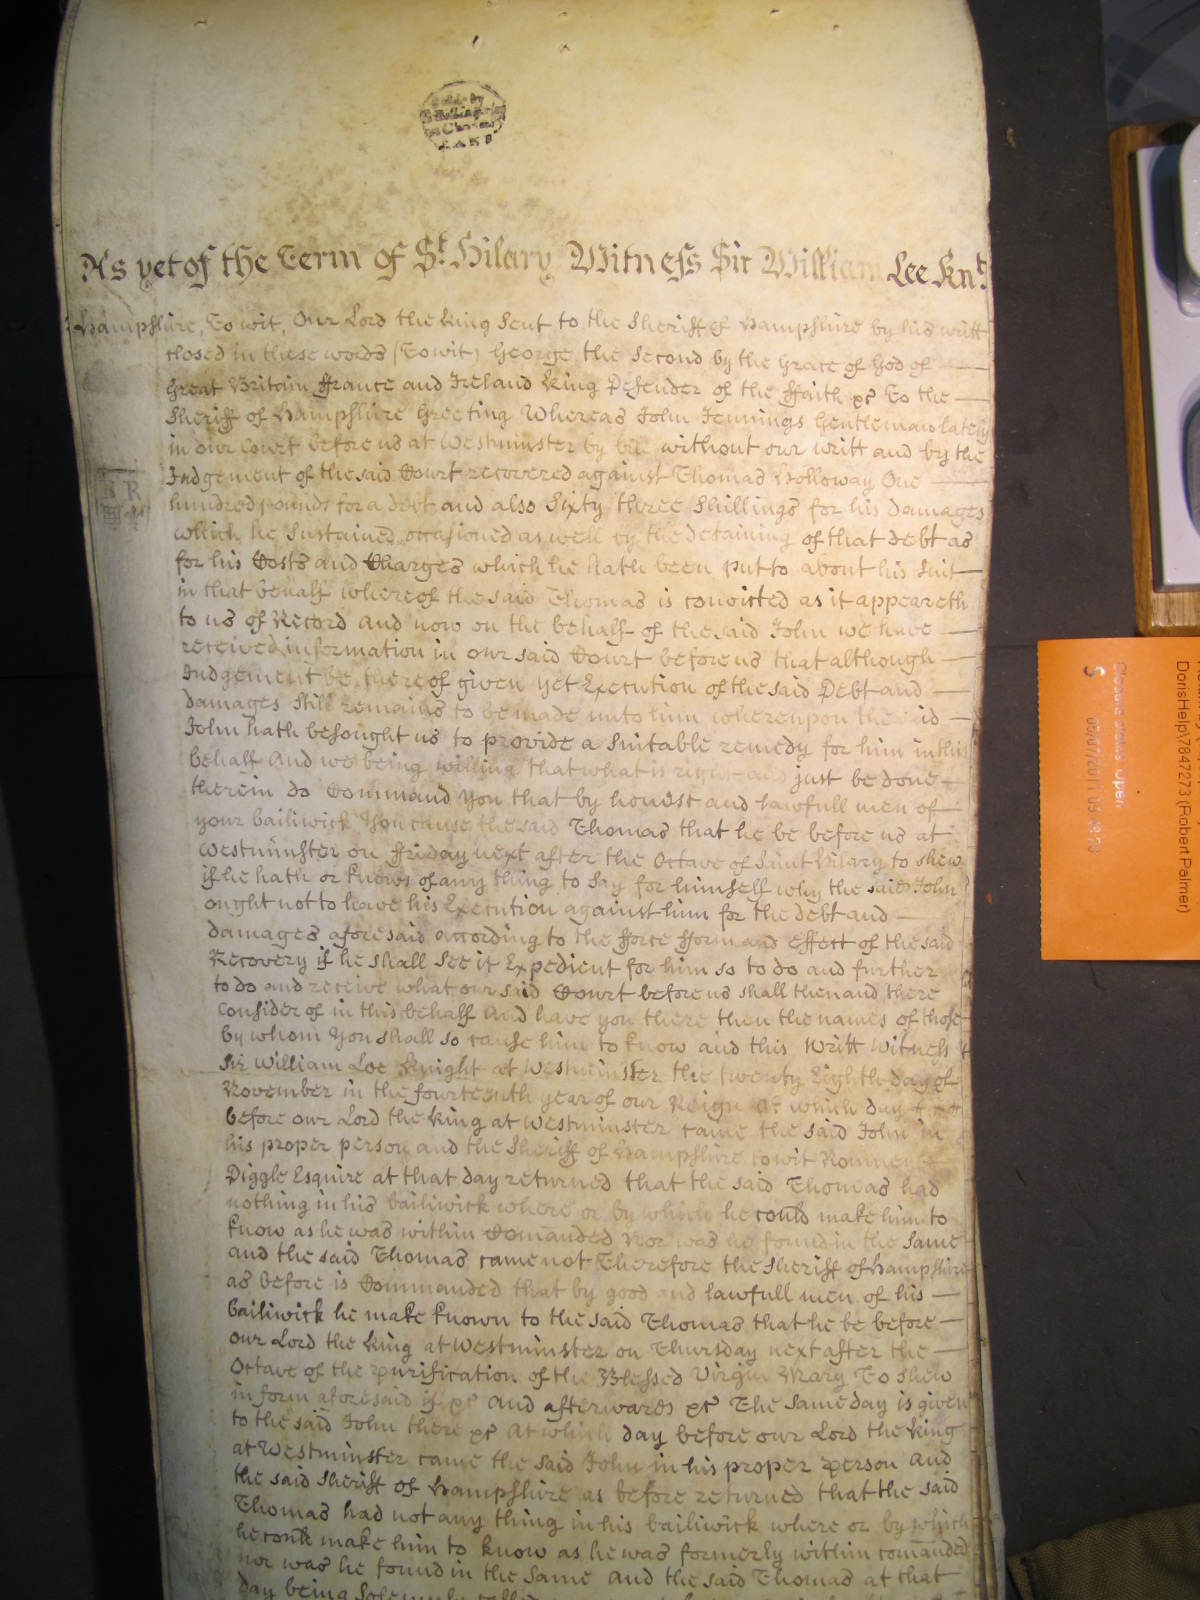 As yet of the Term of St. Hilary Witness Sir William Lee Knt.
Hampshire, To wit, Our Lord the King Sent to the Sheriff of Hampshire by his writt
closed in these words (To wit) George the Second by the Grace of God of
Great Britain ffrance and Ireland King Defender of the ffaith &c To the
Sheriff of Hampshire Greeting Whereas John Jennings Gentleman lately
in our Court before us at Westminster by bill without our writt and by the
Judgement of the said Court recovered against Thomas Holloway One
hundred pounds for a debt and also Sixty three Shillings for his damages
which he Sustained occasioned as well by the detaining of that debt as
for his Costs and Charges which he hath been put to about his Suit
in that behalf whereof the said Thomas is convicted as it appeareth
to us of Record And now on the behalf of the said John we have
received information in our said Court before us that although
Judgement be thereof given yet Execution of the said Debt and
damages still remains to be made unto him whereupon the said
John hath besought us to provide a Suitable remedy for him in this
behalf And we being willing that what is right and just be done
therein do Command you that by honest and lawfull men of
your bailiwick You cause the said Thomas that he be before us at
Westminster on ffriday next after the Octave of Saint Hilary to shew
if he hath or knows of any thing to Say for himself why the said John
ought not to have his Execution against him for the debt and
damages aforesaid according to the fforce fform and Effect of the said
Recovery if he shall See it Expedient for him so to do and further
to do and receive what our said Court before us shall then and there
Consider of in this behalf And have you there then the names of those
by whom You shall so cause him to know and this Writt Witness
Sir William Lee Knight at Westminster the twenty Eighth day of
November in the fourteenth year of our Reign At which day
before our Lord the King at Westminster came the said John in
his proper person and the Sheriff of Hampshire to wit Romney
Diggle Esquire at that day returned that the said Thomas had
nothing in his bailiwick where or by which he could make him to
know as he was within Comanded Nor was he found in the Same
and the said Thomas came not Therefore the Sheriff of Hampshire
as before is Commanded that by good and lawfull men of his
bailiwick he make known to the said Thomas that he be before
our Lord the King at Westminster on Thursday next after the
Octave of the purification of the Blessed Virgin Mary To Shew
in form aforesaid if &c And afterwards &c The Same day is given
to the said John there &c At which day before our Lord the King
at Westminster came the said John in his proper person And
the said Sheriff of Hampshire as before returned that the said
Thomas had not any thing in his bailiwick where or by which
he could make him to know as he was formerly within comanded
nor was he found in the Same And the said Thomas at that
day being Solemnly
DorisHelp\7847273 (Robert Palmer)
Open
5